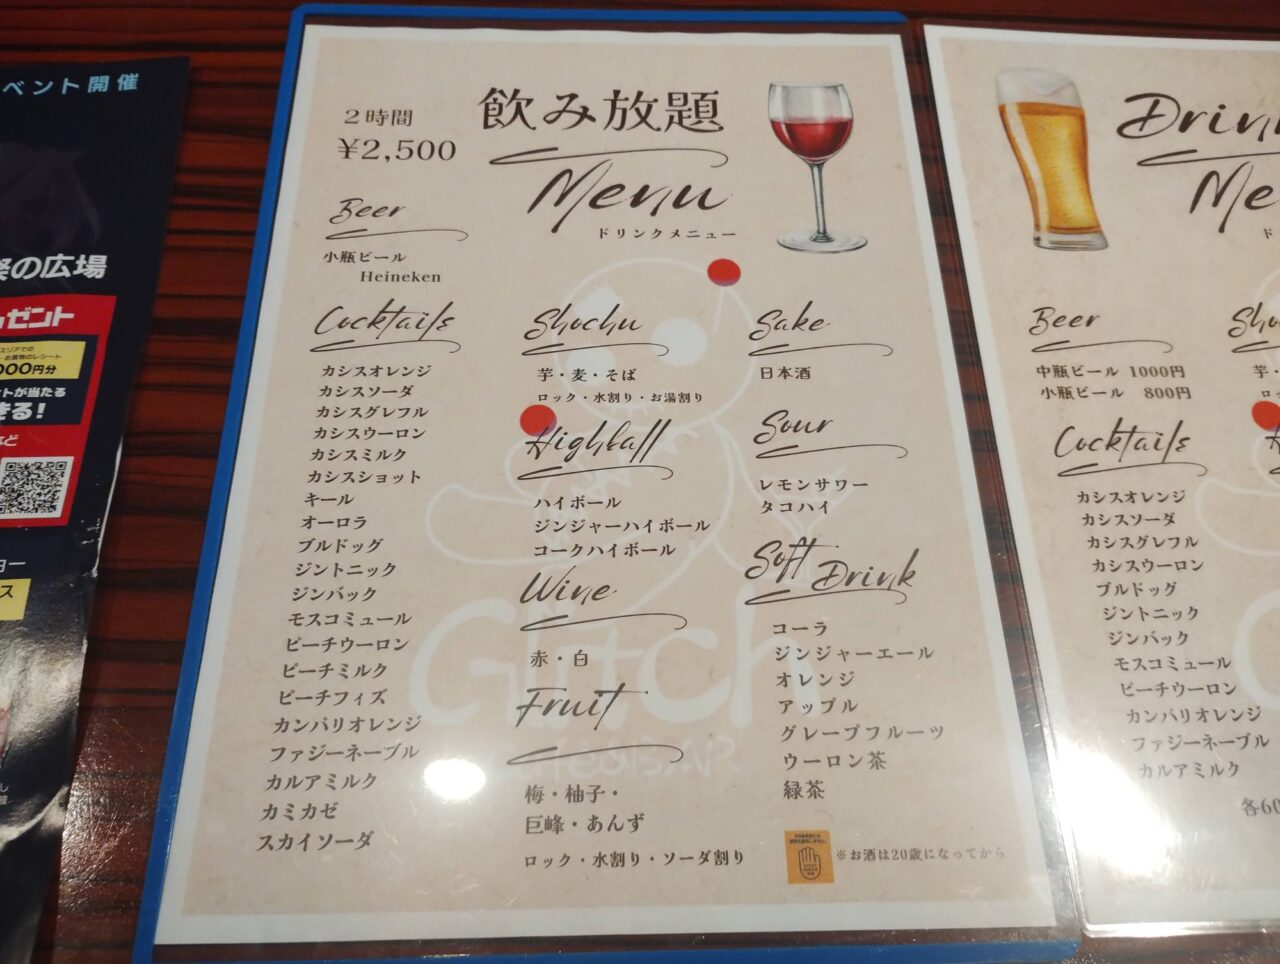 ベント開催
の広場
ゼント
エリアでの
お買物のレシート
000円分
ントが当たる
きる!
など
ス
2時間
¥2,500
飲み放題
Menu
ドリンクメニュー
Beer
小瓶ビール
Heineken
Cocktails
カシスオレンジ
カシスソーダ
カシスグレフル
カシスウーロン
カシスミルク
カシスショット
キール
オーロラ
ブルドッグ
ジントニック
ジンバック
モスコミュール
ピーチウーロン
ピーチミルク
ピーチフィズ
カンパリオレンジ
ファジーネーブル
カルアミルク
カミカゼ
スカイソーダ
Shochu
芋・麦・そば
ロック・水割り・お湯割り
Highball
ハイボール
ジンジャーハイボール
コークハイボール
Wine
赤・白
Fruit
梅・柚子・
巨峰・あんず
ロック・水割り・ソーダ割り
Sake
日本酒
Sour
レモンサワー
タコハイ
Soft Drink
コーラ
ジンジャーエール
オレンジ
アップル
グレープフルーツ
ウーロン茶
緑茶
※お酒は20歳になってから
Glitch
Drin
Me
ド
Beer
中瓶ビール 1000円
小瓶ビール 800円
Cocktails
カシスオレンジ
カシスソーダ
カシスグレフル
カシスウーロン
ブルドッグ
ジントニック
ジンバック
モスコミュール
ピーチウーロン
カンパリオレンジ
ファジーネーブル
カルアミルク
各60
Sho
芋・
ロッ